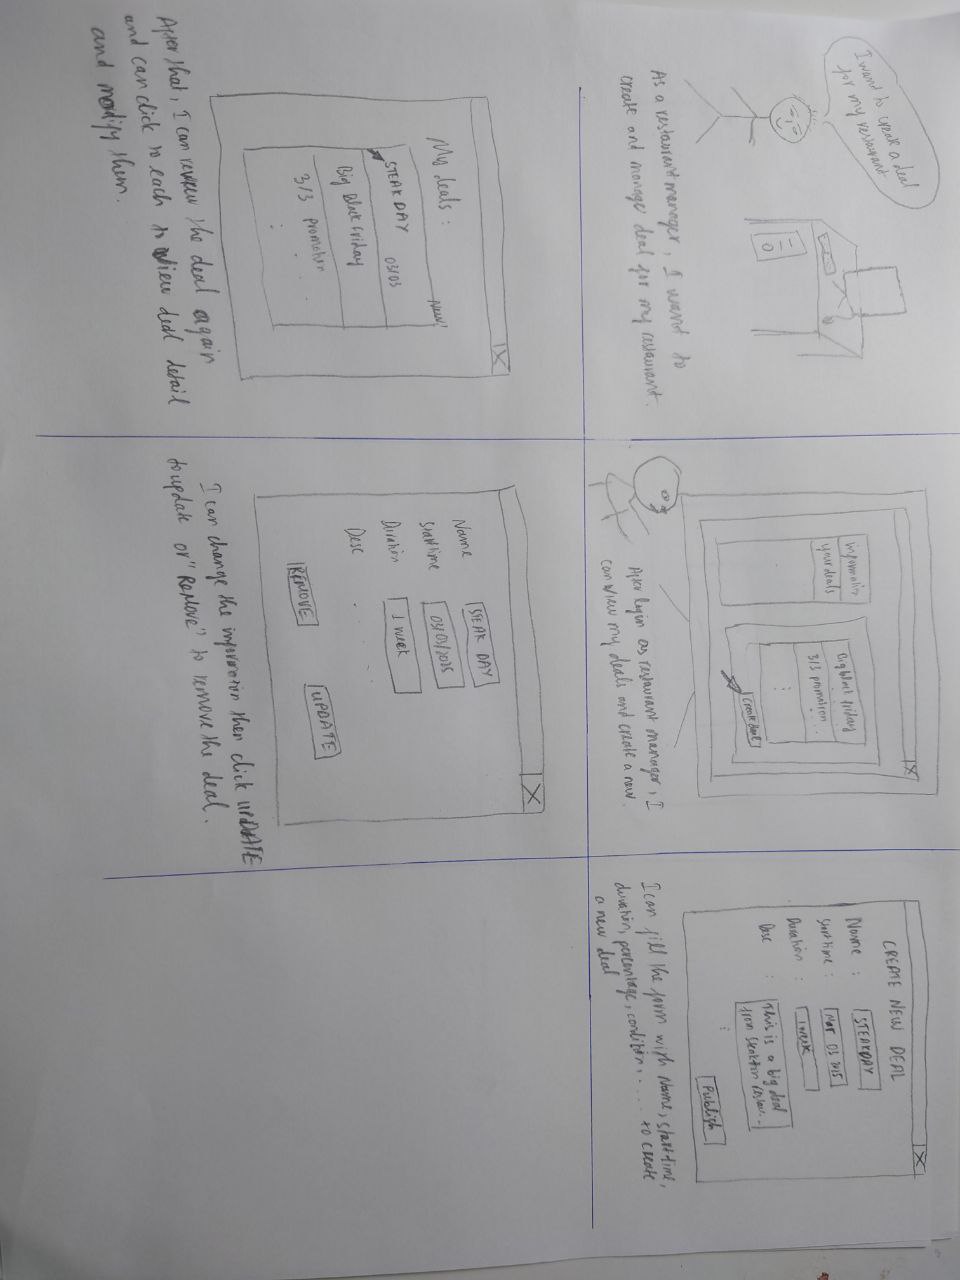 I want to create a deal
for my restaurant
As a restaurant manager, I want to
create and manage deal for my restaurant.
X
information
your deals
Big black friday
3/3 promotion
Create deal
After login as restaurant manager, I
can view my deals and create a new.
X
CREATE NEW DEAL
Name : STEAKDAY
Start time : Mar 03 2025
Duration : 1 week
Desc : This is a big deal
from Steak
Publish
I can fill the form with Name, start time,
duration, percentage, condition, ..... to create
a new deal
X
My deals :
New!
STEAK DAY
03/03
Big Black Friday
3/3 promotion
After that, I can review the deal again
and can click to each to view deal detail
and modify them.
X
Name STEAK DAY
Start time 03/03/2025
Duration 1 week
Desc . . . . .
REMOVE UPDATE
I can change the information then click UPDATE
to update or "Remove" to remove the deal.